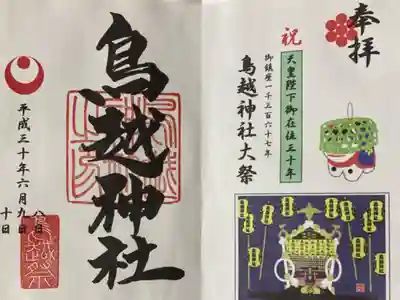 奉拝
祝
天皇陛下御在位三十年
御鎮座一千三百六十七年
鳥越神社大祭
鳥越神社
平成三十年六月九日
八日
十日
鳥越祭